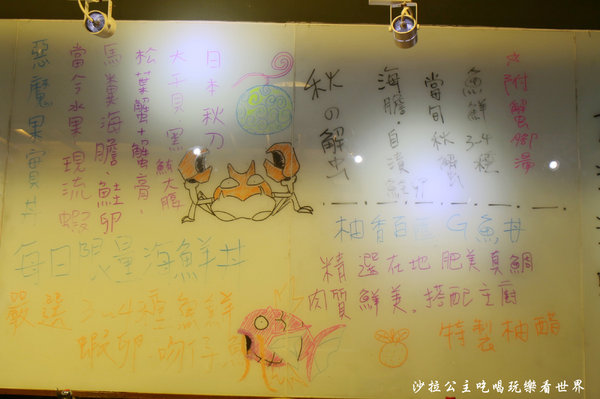 *附蟹腳湯
魚鮮3-4種
當旬秋蟹
海膽.自漬鮭卵
秋の解虫
柚香百匯G魚丼
精選在地肥美真鯛
肉質鮮美。搭配主廚
特製柚醋
日本秋刀
大干貝.黑鮪大腹
松葉蟹+蟹膏、
馬糞海膽、鮭卵
當令水果現流蝦
惡魔果實丼
每日限量海鮮丼
嚴選3.4種魚鮮
蝦卵.吻仔魚
沙拉公主吃喝玩樂看世界